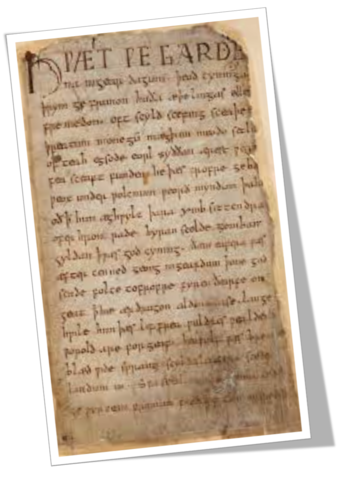 HǷÆT ǷE GARDE
na ingear dagum. þeod cyninga
þrym ge frunon huða æþelingas ellen
fremedon. oft scyld scefing sceaþe
þreatum monegū mægþum meodo setla
of teah egsode eorl syððan ærest ƿear
fea sceaft funden he þæs frofre geba
ƿeox under ƿolcnum ƿeorð myndum þah
oð þ him æghƿylc þara ymb sittendra
ofer hron rade hyran scolde gomban
gyldan þ ƿæs god cyning. ðæm eafera ƿæs
æfter cenned geong ingeardum þone god
sende folce tofrofre fyren ðearfe on
geat þ hie ær drugon aldor ase. lange
hƿile him þæs lif frea ƿuldres ƿealdend
ƿorold are forgeaf. beoƿulf ƿæs breme
blæd ƿide sprang scyldes eafera scede
landum in. Sƿa sceal